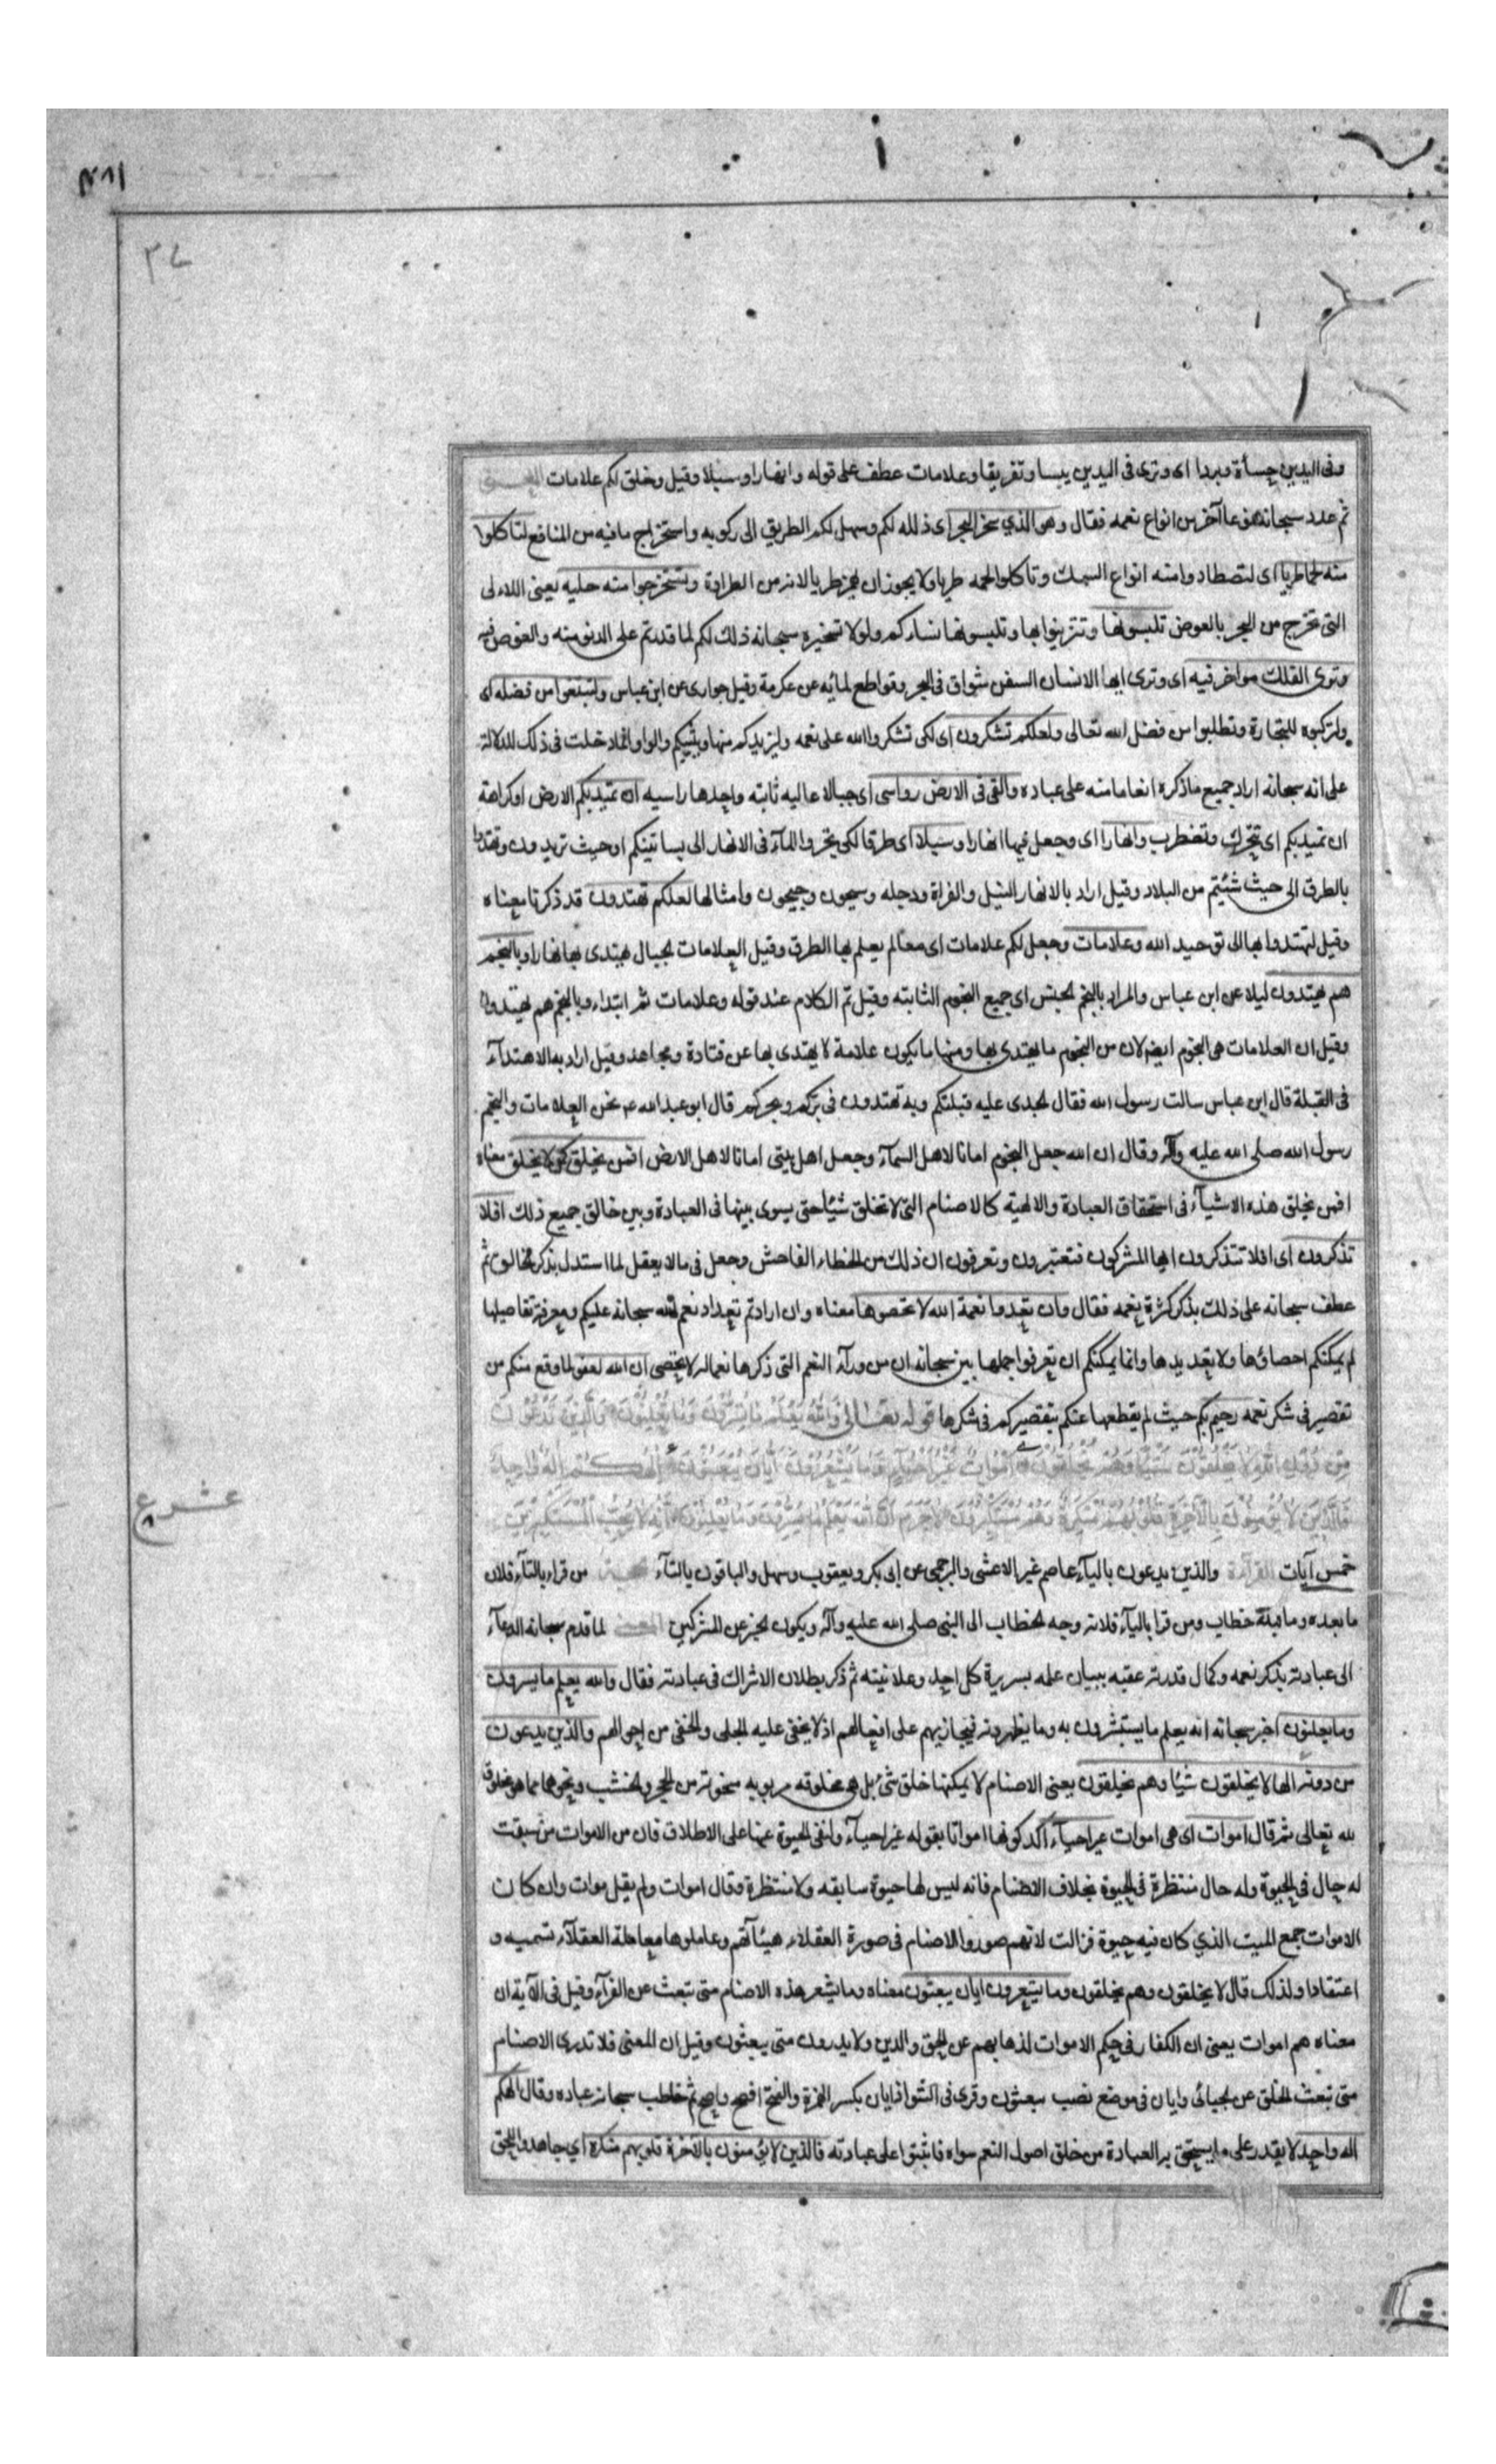 وفى اليدين جسأة وبردا اى وترى فى اليدين يبسا وتفريقا وعلامات عطف على قوله وانهارا وسبلا وقيل وخلق لكم علامات المعنى
ثم عدد سبحانه نوعا آخر من انواع نعمه فقال وهو الذي سخر البحر اى ذلله لكم وسهل لكم الطريق الى ركوبه واستخراج ما فيه من المنافع لتاكلوا
منه لحما طريا اى لتصطادوا منه انواع السمك وتاكلوا لحمه طريا ولا يجوز ان يهمز طريا لانه من الطراوة وتستخرجوا منه حليه يعنى اللاءلى
التى تخرج من البحر بالغوص تلبسونها وتتزينوا بها وتلبسونها نساءكم ولولا تسخيره سبحانه ذلك لكم لما قدرتم على الدنو منه والغوص فيه
وترى الفلك مواخر فيه اى وترى ايها الانسان السفن شواق فى البحر وقواطع لمائه عن عكرمة وقيل جوارى عن ابن عباس ولتبتغوا من فضله اى
ولتركبوه للتجارة وتطلبوا من فضل الله تعالى ولعلكم تشكرون اى لكى تشكروا الله على نعمه وليزيدكم منها ويثيبكم والواو انما دخلت فى ذلك للدلالة
على انه سبحانه اراد جميع ما ذكره انعاما منه على عباده والقى فى الارض رواسى اى جبالا عاليه ثابته واحدها راسيه ان تميد بكم الارض او كراهة
ان تميد بكم اى تتحرك وتضطرب وانهارا اى وجعل فيها انهارا وسبلا اى طرقا لكى يجروا الماء فى الانهار الى بساتينكم او حيث تريدون وتهتدوا
بالطرق الى حيث شئتم من البلاد وقيل اراد بالانهار النيل والفراة ودجله وسيحون وجيحون وامثالها لعلكم تهتدون قد ذكرنا معناه
وقيل لتهتدوا بها الى توحيد الله وعلامات وجعل لكم علامات اى معالم يعلم بها الطرق وقيل العلامات لجبال يهتدى بها نهارا وبالنجم
هم يهتدون ليلا عن ابن عباس والمراد بالنجم لجنس اى جميع النجوم الثابته وقيل تم الكلام عند قوله وعلامات ثم ابتداء وبالنجم هم يهتدون
وقيل ان العلامات هى النجوم ايضا لان من النجوم ما يهتدى بها ومنها ما يكون علامة لا يهتدى بها عن قتادة ومجاهد وقيل اراد به الاهتداء
فى القبلة قال ابن عباس سالت رسول الله فقال لجدى عليه قبلتكم وبه تهتدون فى بركم وبحركم قال ابو عبد الله ع نحن العلامات والنجم
رسول الله صلى الله عليه وآله وقال ان الله جعل النجوم امانا لاهل السماء وجعل اهل بيتى امانا لاهل الارض افمن يخلق كمن لا يخلق معناه
افمن يخلق هذه الاشياء فى استحقاق العبادة والالهية كالاصنام التى لا تخلق شيئا حتى يسوى بينها فى العبادة وبين خالق جميع ذلك افلا
تذكرون اى افلا تتذكرون ايها المشركون فتعتبرون وتعرفون ان ذلك من لخطاء الفاحش وجعل فى ما لا يعقل لما استدل بذكر لخالق ثم
عطف سبحانه على ذلك بذكر كثرة نعمه فقال وان تعدوا نعمة الله لا تحصوها معناه وان اردتم تعداد نعم الله سبحانه عليكم ومعرفة تفاصيلها
لم يمكنكم احصاؤها ولا تعديدها وانما يمكنكم ان تعرفوا جملها بين سبحانه ان من ورآء النعم التى ذكرها نعما له لا تحصى ان الله لغفور لما وقع منكم من
تقصير فى شكر نعمه رحيم بكم حيث لم يقطعها عنكم بتقصيركم فى شكرها قوله تعالى وَاللهُ يَعْلَمُ مَا تُسِرُّونَ وَمَا تُعْلِنُونَ وَالَّذِينَ تَدْعُونَ
مِنْ دُونِ اللهِ لَا يَخْلُقُونَ شَيْئًا وَهُمْ يُخْلَقُونَ اَمْوَاتٌ غَيْرُ اَحْيَاءٍ وَمَا يَشْعُرُونَ اَيَّانَ يُبْعَثُونَ اِلٰهُكُمْ اِلٰهٌ وَاحِدٌ
فَالَّذِينَ لَا يُؤْمِنُونَ بِالْآخِرَةِ قُلُوبُهُمْ مُنْكِرَةٌ وَهُمْ مُسْتَكْبِرُونَ لَا جَرَمَ اَنَّ اللهَ يَعْلَمُ مَا يُسِرُّونَ وَمَا يُعْلِنُونَ اِنَّهُ لَا يُحِبُّ الْمُسْتَكْبِرِينَ
عشر ع
خمس آيات القرآءة والذين يدعون بالياء عاصم غير الاعشى والبرجمى عن ابى بكر ويعقوب وسهل والباقون بالتاء من قراء بالتاء فلان
ما بعده وما قبله خطاب ومن قرا بالياء فلانه وجه لخطاب الى النبى صلى الله عليه وآله ويكون لخبر عن المشركين المعنى لما قدم سبحانه الدعاء
الى عبادته بذكر نعمه وكمال قدرته عقبه ببيان علمه بسريرة كل احد وعلانيته ثم ذكر بطلان الاشراك فى عبادته فقال والله يعلم ما يسرون
وما يعلنون اخبر سبحانه انه يعلم ما يستسرون به وما يظهرونه فيجازيهم على افعالهم اذ لا يخفى عليه لجلى ولخفى من احوالهم والذين يدعون
من دونه الها لا يخلقون شيئا وهم يخلقون يعنى الاصنام لا يمكنها خلق شئ بل هى مخلوقه مربوبه منحوتة من لحجر ولخشب ونحوهما مما هو مخلوق
لله تعالى ثم قال اموات اى هى اموات غير احياء اكد كونها امواتا بقوله غير احياء ونفى لحيوة عنها على الاطلاق فان من الاموات من سبقت
له حال فى لحيوة وله حال منتظرة فى لحيوة بخلاف الاصنام فانه ليس لها حيوة سابقه ولا منتظرة وقال اموات ولم يقل موات وان كان
الاموات جمع الميت الذي كان فيه حيوة فزالت لانهم صوروا الاصنام فى صورة العقلاء وهيئآتهم وعاملوها معاملة العقلاء تسميه و
اعتقادا ولذلك قال لا يخلقون وهم يخلقون وما يشعرون ايان يبعثون معناه وما يشعر هذه الاصنام متى تبعث عن الفراء وقيل فى الآية ان
معناه هم اموات يعنى ان الكفار فى حكم الاموات لذهابهم عن لحق والدين ولا يدرون متى يبعثون وقيل ان المعنى فلا تدرى الاصنام
متى تبعث لخلق عن لجبائى وايان فى موضع نصب بيبعثون وقرى فى الشواذ ايان بكسر الهمزة والفتح افصح واصح ثم خاطب سبحانه عباده وقال الهكم
اله واحد لا يقدر على ما يستحق به العبادة من خلق اصول النعم سواه فاثبتوا على عبادته فالذين لا يؤمنون بالآخرة قلوبهم منكرة اى جاحدة للحق